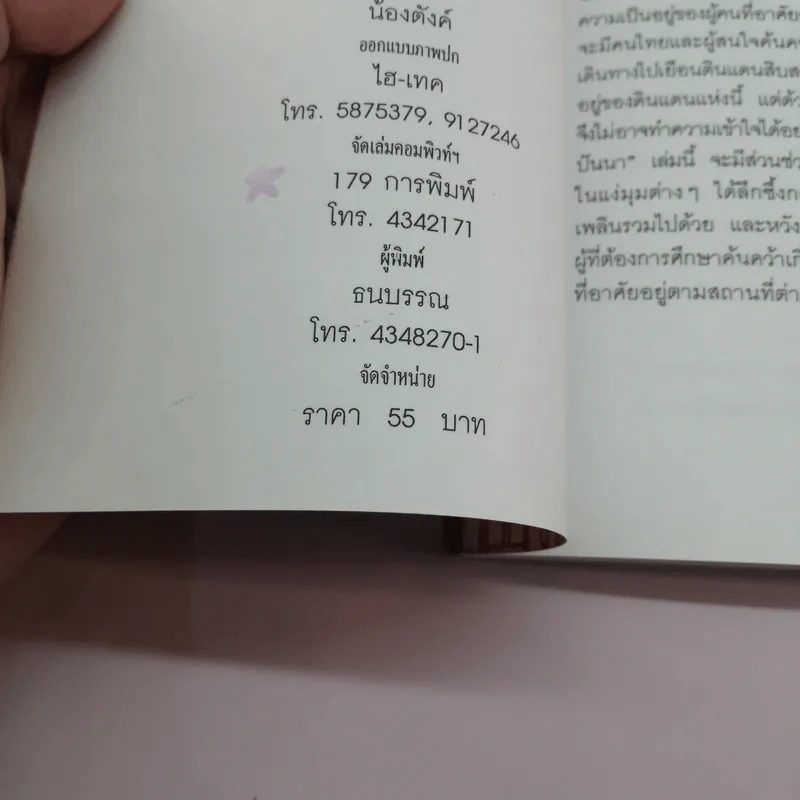 น้องตังค์
ออกแบบภาพปก
ไฮ-เทค
โทร. 5875379, 9127246
จัดเล่มคอมพิวท์ฯ
179 การพิมพ์
โทร. 4342171
ผู้พิมพ์
ธนบรรณ
โทร. 4348270-1
จัดจำหน่าย
ราคา 55 บาท
ความเป็นอยู่ของผู้คนที่อาศัย
จะมีคนไทยและผู้สนใจค้นค
เดินทางไปเยือนดินแดนสิบส
อยู่ของดินแดนแห่งนี้ แต่ด้ว
จึงไม่อาจทำความเข้าใจได้อย
ปันนา" เล่มนี้ จะมีส่วนช่ว
ในแง่มุมต่างๆ ได้ลึกซึ้งก
เพลินรวมไปด้วย และหวัง
ผู้ที่ต้องการศึกษาค้นคว้าเกี
ที่อาศัยอยู่ตามสถานที่ต่า